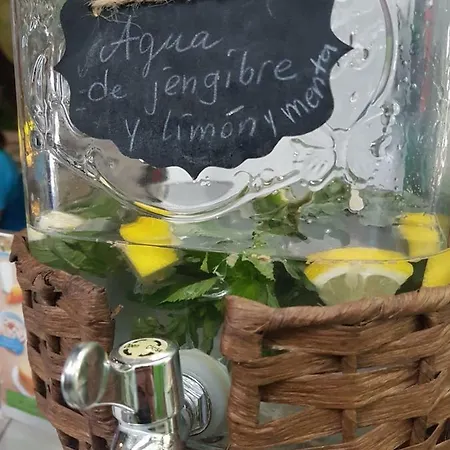 Agua
de jengibre
y limón y menta